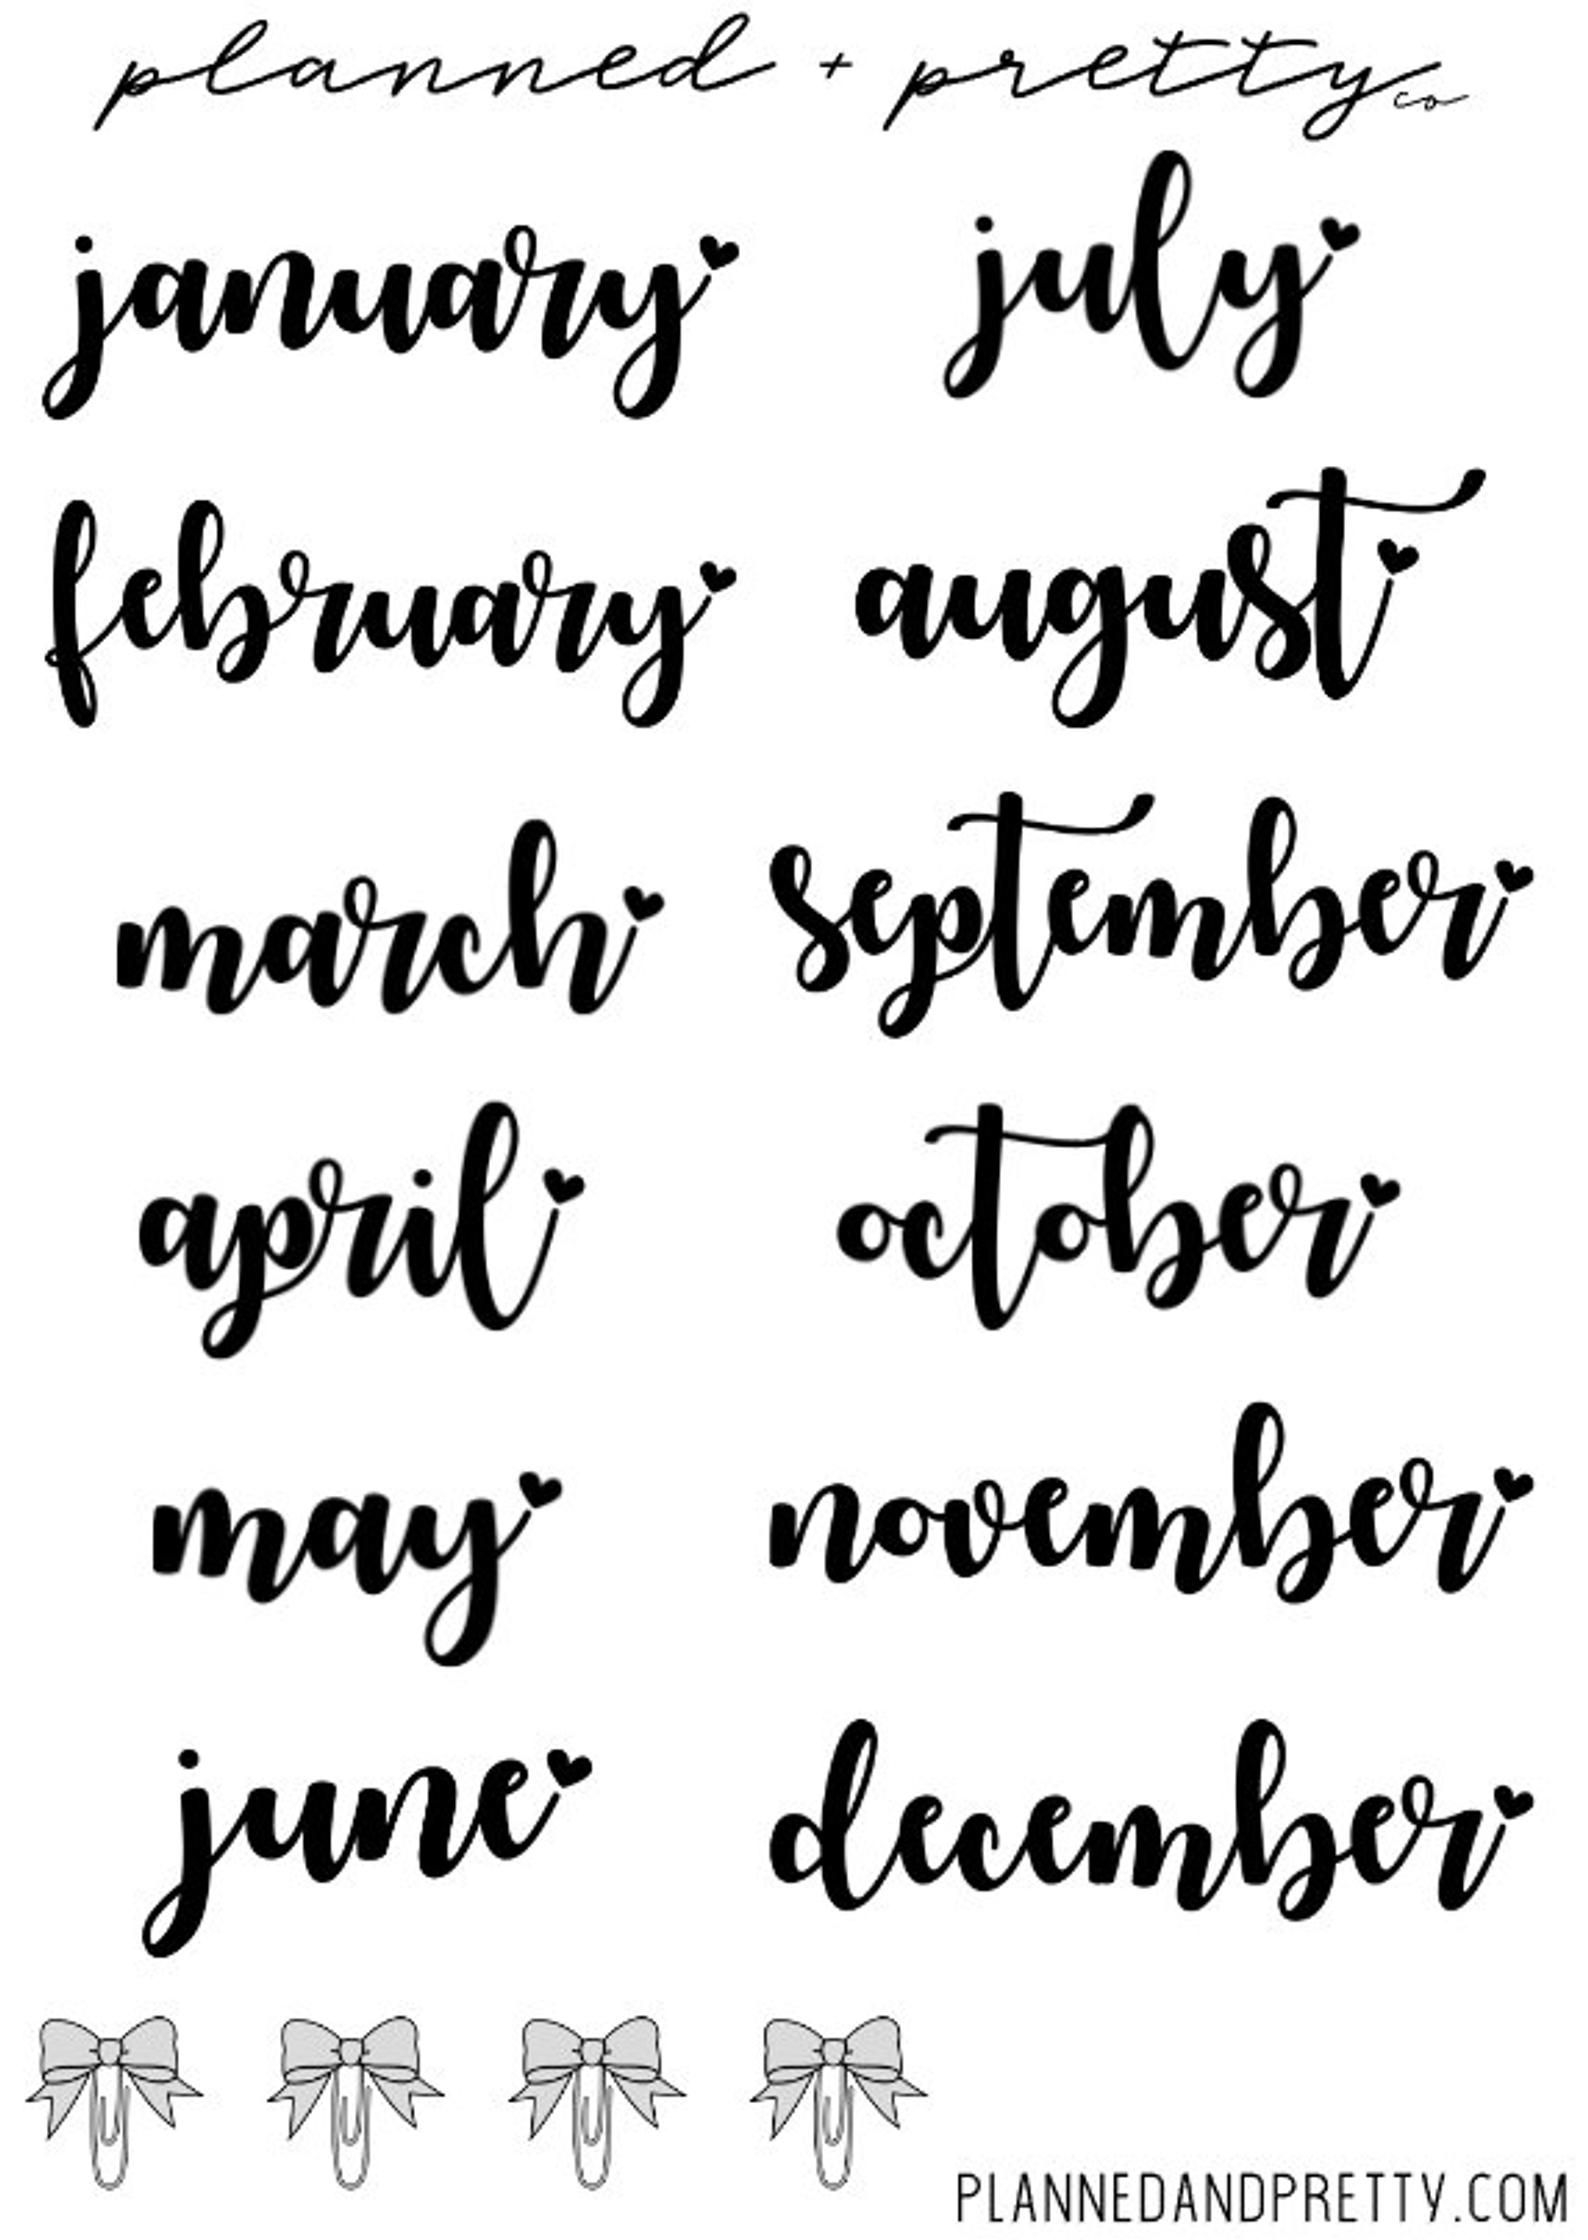 planned + pretty co
january
july
february
august
march
september
april
october
may
november
june
december
PLANNEDANDPRETTY.COM